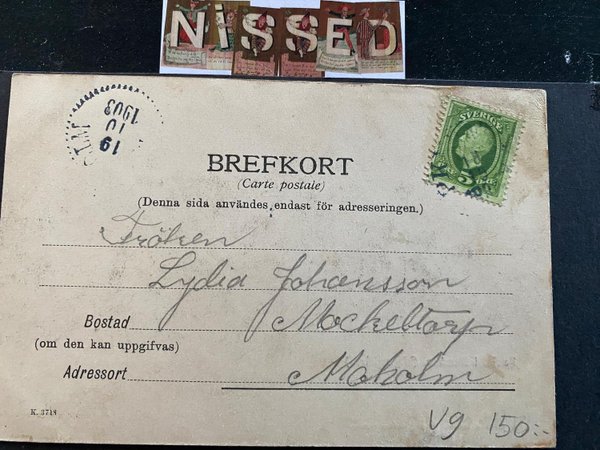 NiSSED
1903
10
19
SVERIGE
5
BREFKORT
(Carte postale)
(Denna sida användes endast för adresseringen.)
Fröken
Lydia Johansson
Bostad Mockebtorp
(om den kan uppgifvas)
Adressort Moholm
K. 3748
V9 150:-